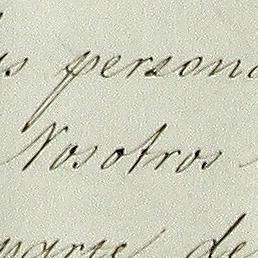 persona
Nosotros
parte de